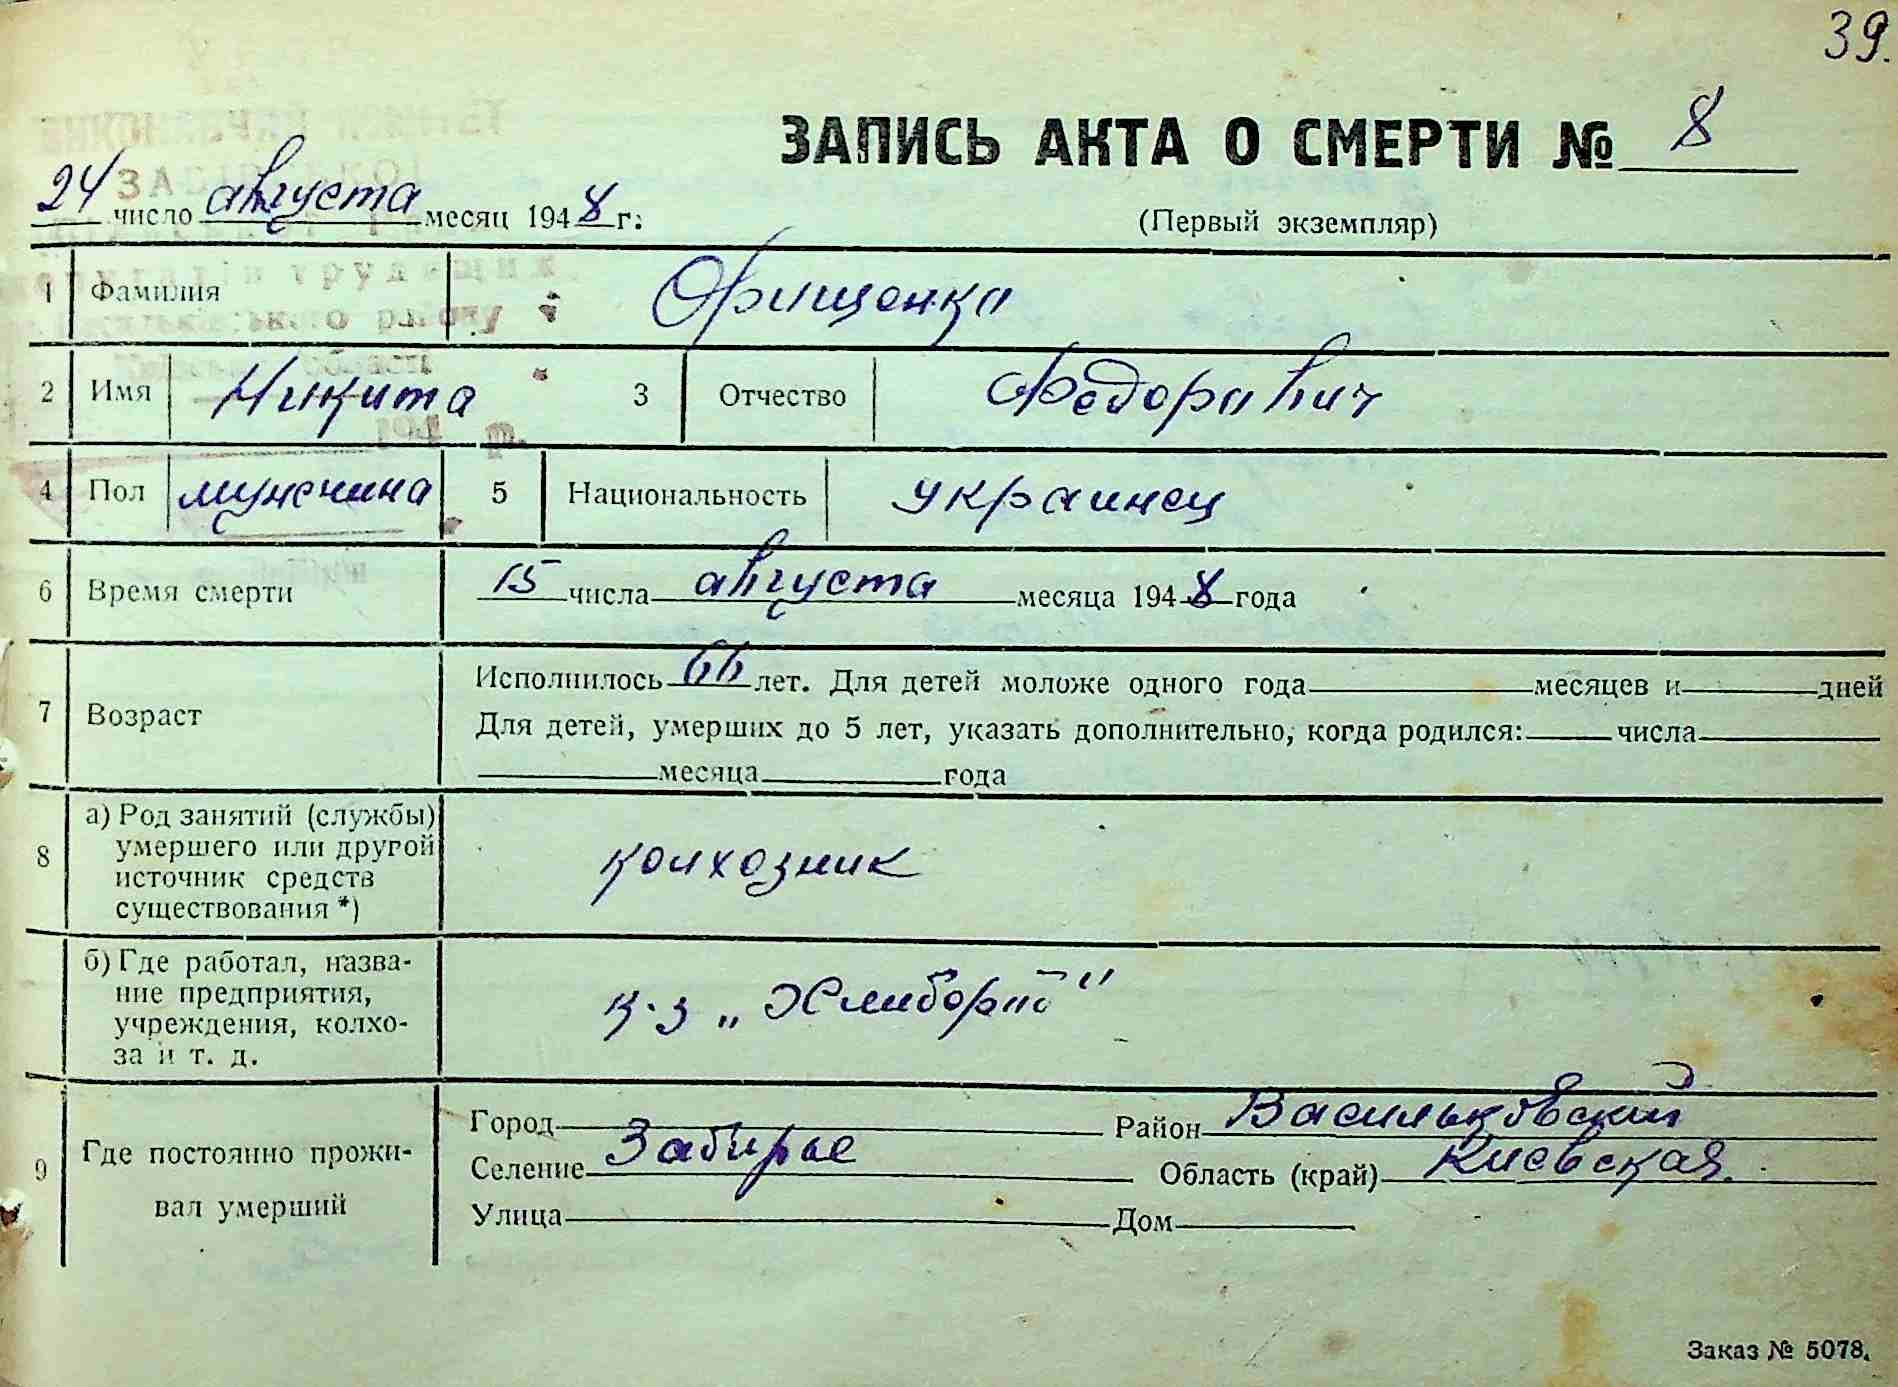 39.
ЗАПИСЬ АКТА О СМЕРТИ № 8
24 число августа месяц 1948 г.
(Первый экземпляр)
1 Фамилия Фрищенко
2 Имя Никита 3 Отчество Федорович
4 Пол мужчина 5 Национальность украинец
6 Время смерти 15 числа августа месяца 1948 года
7 Возраст Исполнилось 66 лет. Для детей моложе одного года месяцев и дней
Для детей, умерших до 5 лет, указать дополнительно, когда родился: числа
месяца года
8 а) Род занятий (службы)
умершего или другой
источник средств
существования *)
колхозник
б) Где работал, назва-
ние предприятия,
учреждения, колхо-
за и т. д.
к-з „Хлибороб"
9 Где постоянно прожи-
вал умерший
Город Район Васильковский
Селение Забирье Область (край) Киевская.
Улица Дом
Заказ № 5078.